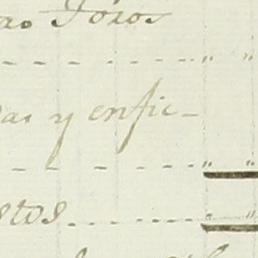 as. Toros
as y enfic-
stos